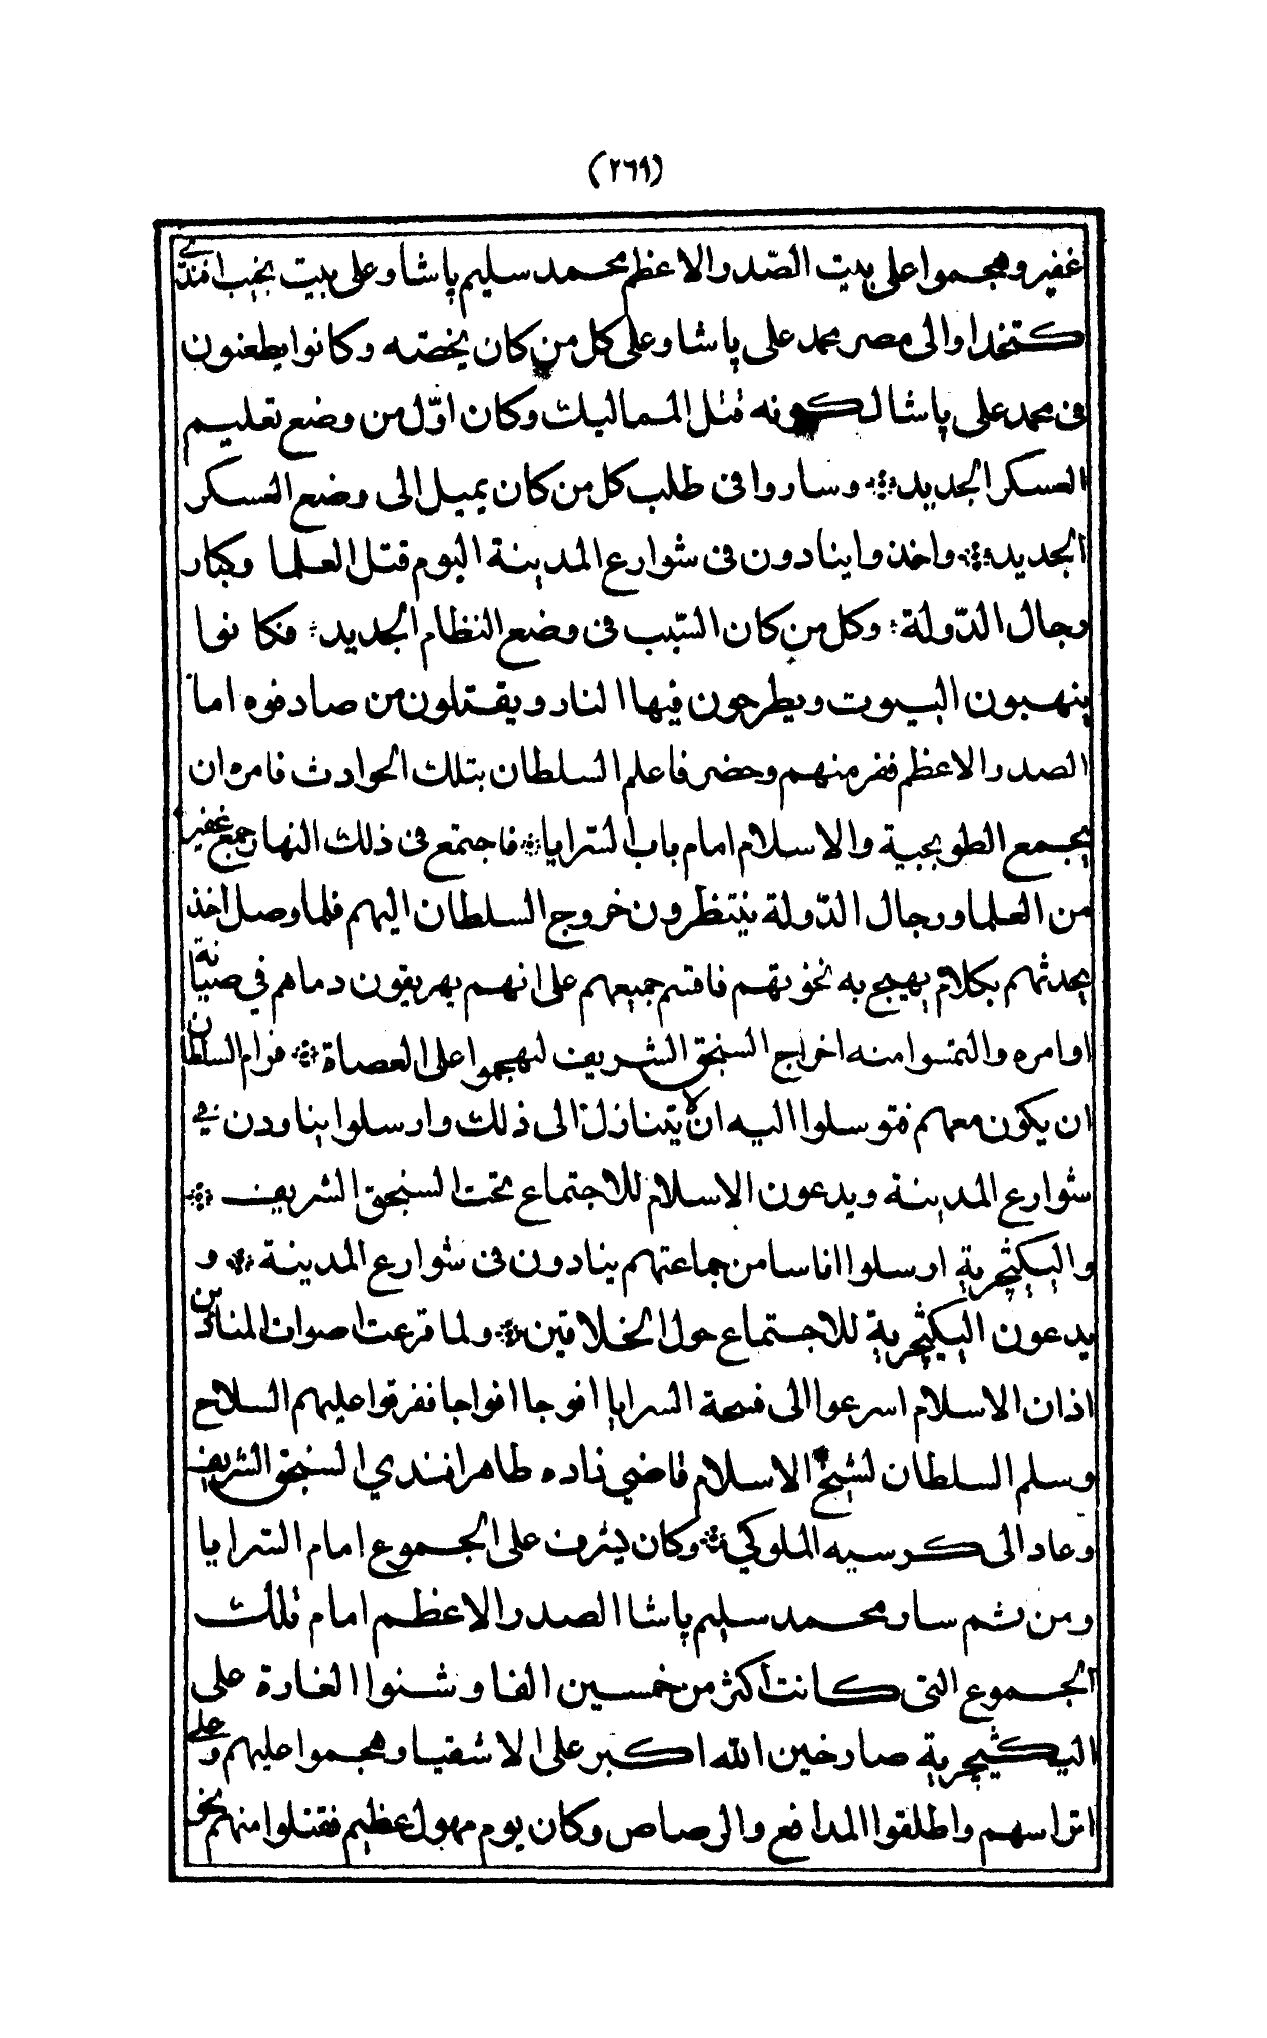 (٢٦٩)
غفير وهجموا على بيت الصّدر الاعظم محمد سليم پاشا وعلى بيت نجيب افندى
كتخدا والى مصر محمد على پاشا وعلى كل من كان يخصّه وكانوا يطعنون
فى محمد على پاشا لكونه قتل المماليك وكان اوّل من وضع تعليم
العسكر الجديد وساروا فى طلب كل من كان يميل الى وضع العسكر
الجديد واخذوا ينادون فى شوارع المدينة اليوم قتل العلما وكبار
رجال الدّولة وكل من كان السّبب فى وضع النظام الجديد فكانوا
ينهبون البيوت ويطرحون فيها النار ويقتلون من صادفوه اما
الصدر الاعظم ففر منهم وحضر فاعلم السلطان بتلك الحوادث فامره ان
يجمع الطوبجية والاسلام امام باب السّرايا فاجتمع فى ذلك النهار جمع غفير
من العلما ورجال الدّولة ينتظرون خروج السلطان اليهم فلما وصل اخذ
يحدثهم بكلام يهيج به نخوتهم فاقسم جميعهم على انهم يهريقون دماهم في صيانة
اوامره والتمسوا منه اخراج السنجق الشريف ليهجموا على العصاة فرام السلطان
ان يكون معهم فتوسلوا اليه ان لا يتنازل الى ذلك وارسلوا يناودن في
شوارع المدينة ويدعون الاسلام للاجتماع تحت السنجق الشريف
واليكيچرية ارسلوا اناسا من جماعتهم ينادون فى شوارع المدينة و
يدعون اليكيچرية للاجتماع حول الخلاقين ولما قرعت اصوات المنادين
اذان الاسلام اسرعوا الى فسحة السرايا افوجا افواجا ففرقوا عليهم السلاح
وسلم السلطان لشيخ الاسلام قاضي زاده طاهر افندي السنجق الشريف
وعاد الى كرسيه الملوكي وكان يشرف على الجموع امام السّرايا
ومن ثم سار محمد سليم پاشا الصدر الاعظم امام تلك
الجموع التى كانت اكثر من خمسين الفا وشنوا الغارة على
اليكيچرية صارخين الله اكبر على الاشقيا وهجموا عليهم وعلى
اتراسهم واطلقوا المدافع والرصاص وكان يوم مهول عظيم فقتلوا منهم نحو